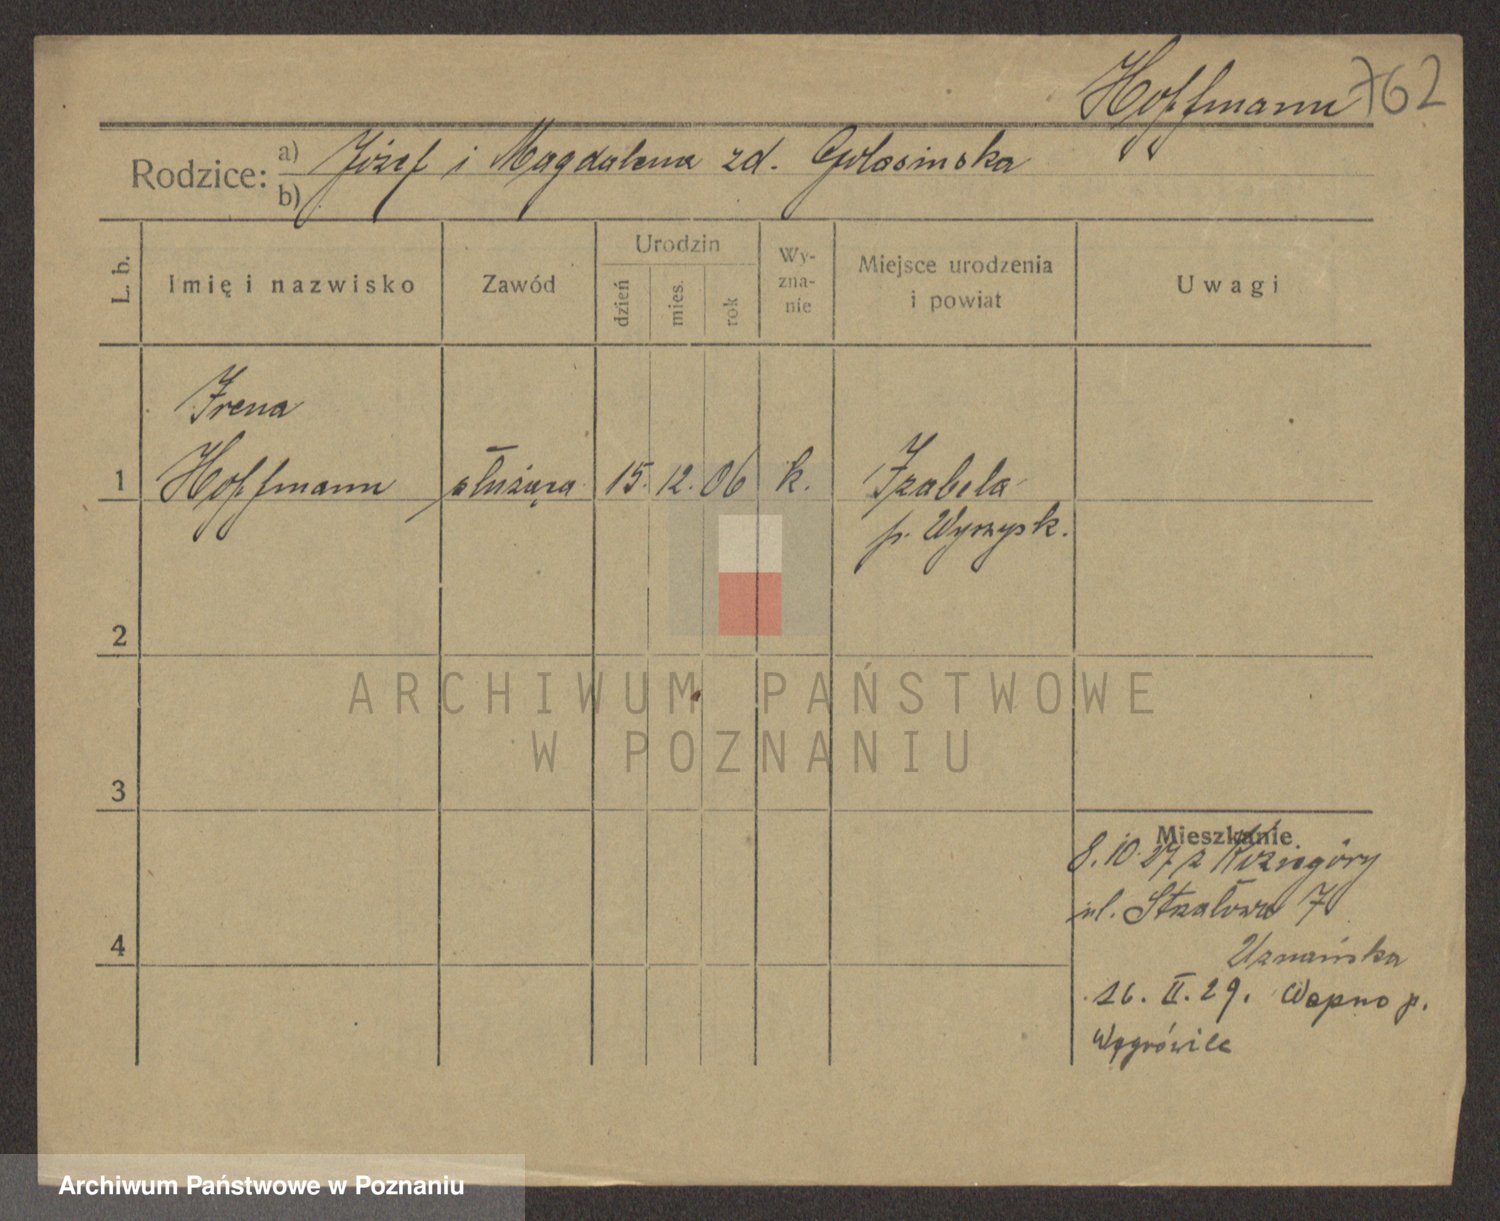 Hoffmann 762
Rodzice: a) Józef i Magdalena zd. Golasinska
b)
L. b.
Imię i nazwisko
Zawód
Urodzin
dzień
mies.
rok
Wy-
zna-
nie
Miejsce urodzenia
i powiat
Uwagi
Irena
1 Hoffmann służąca 15. 12. 06 k. Izabela
p. Wyrzysk.
2
ARCHIWUM PAŃSTWOWE
W POZNANIU
3
Mieszkanie
8.10.27 z
ul. Strzałowa 7
Uznańska
4
26. II. 29. Wapno p.
Wągrówiec
Archiwum Państwowe w Poznaniu